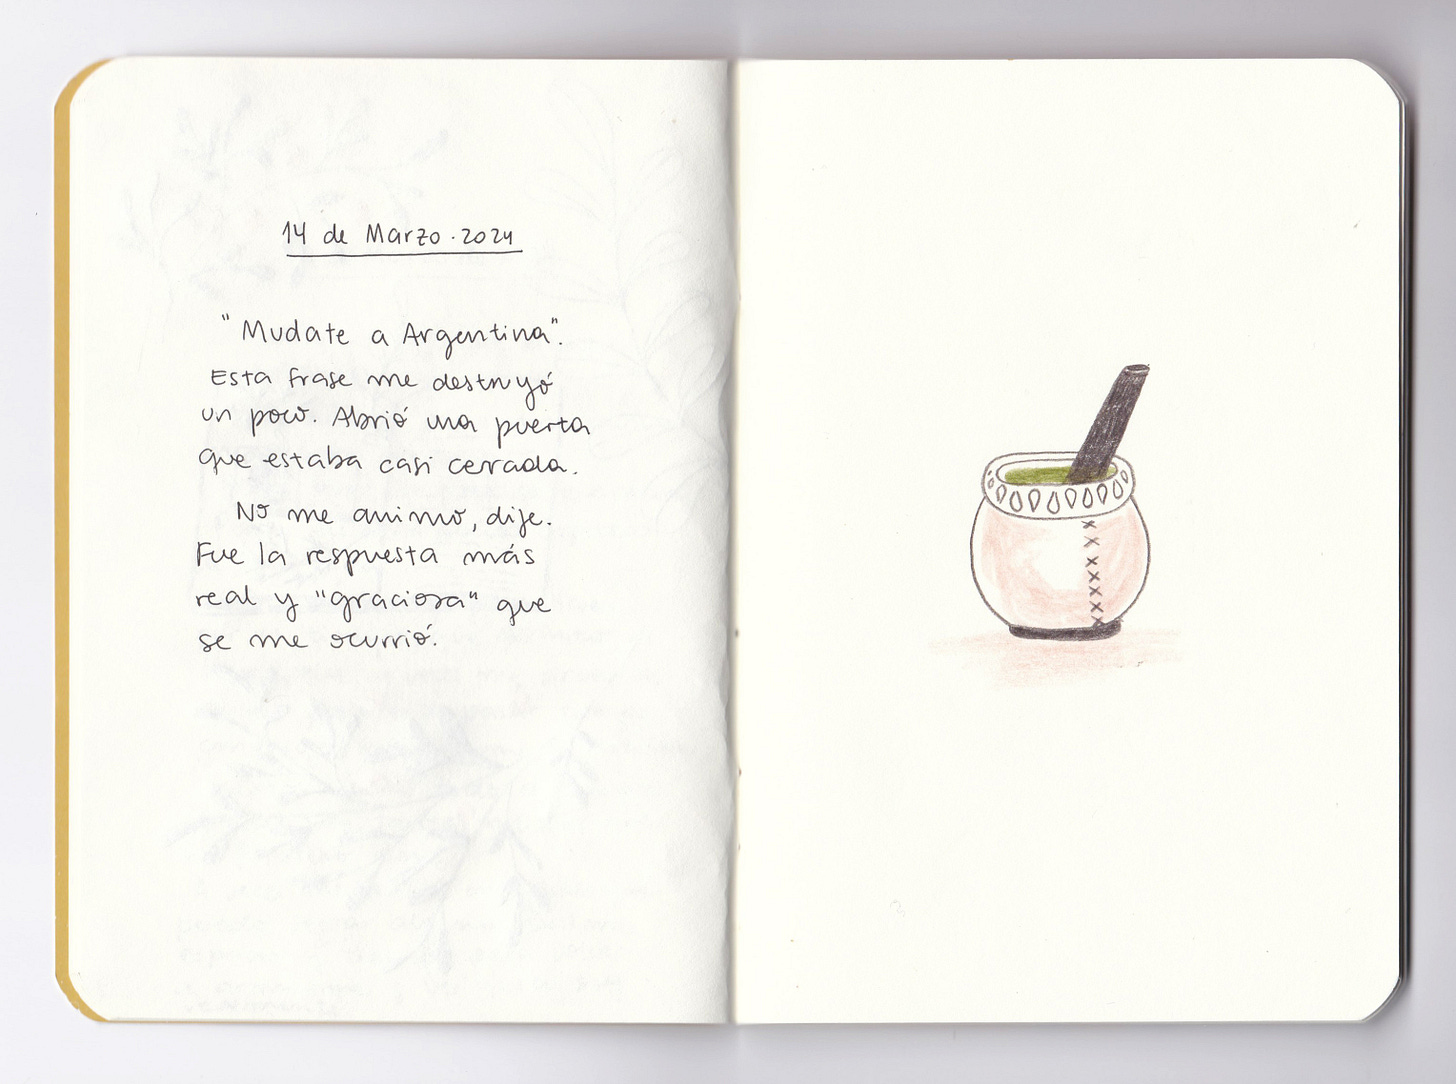 14 de Marzo.2024
"Mudate a Argentina".
Esta frase me destruyó
un poco. Abrió una puerta
que estaba casi cerrada.
No me animo, dije.
Fue la respuesta más
real y "graciosa" que
se me ocurrió.